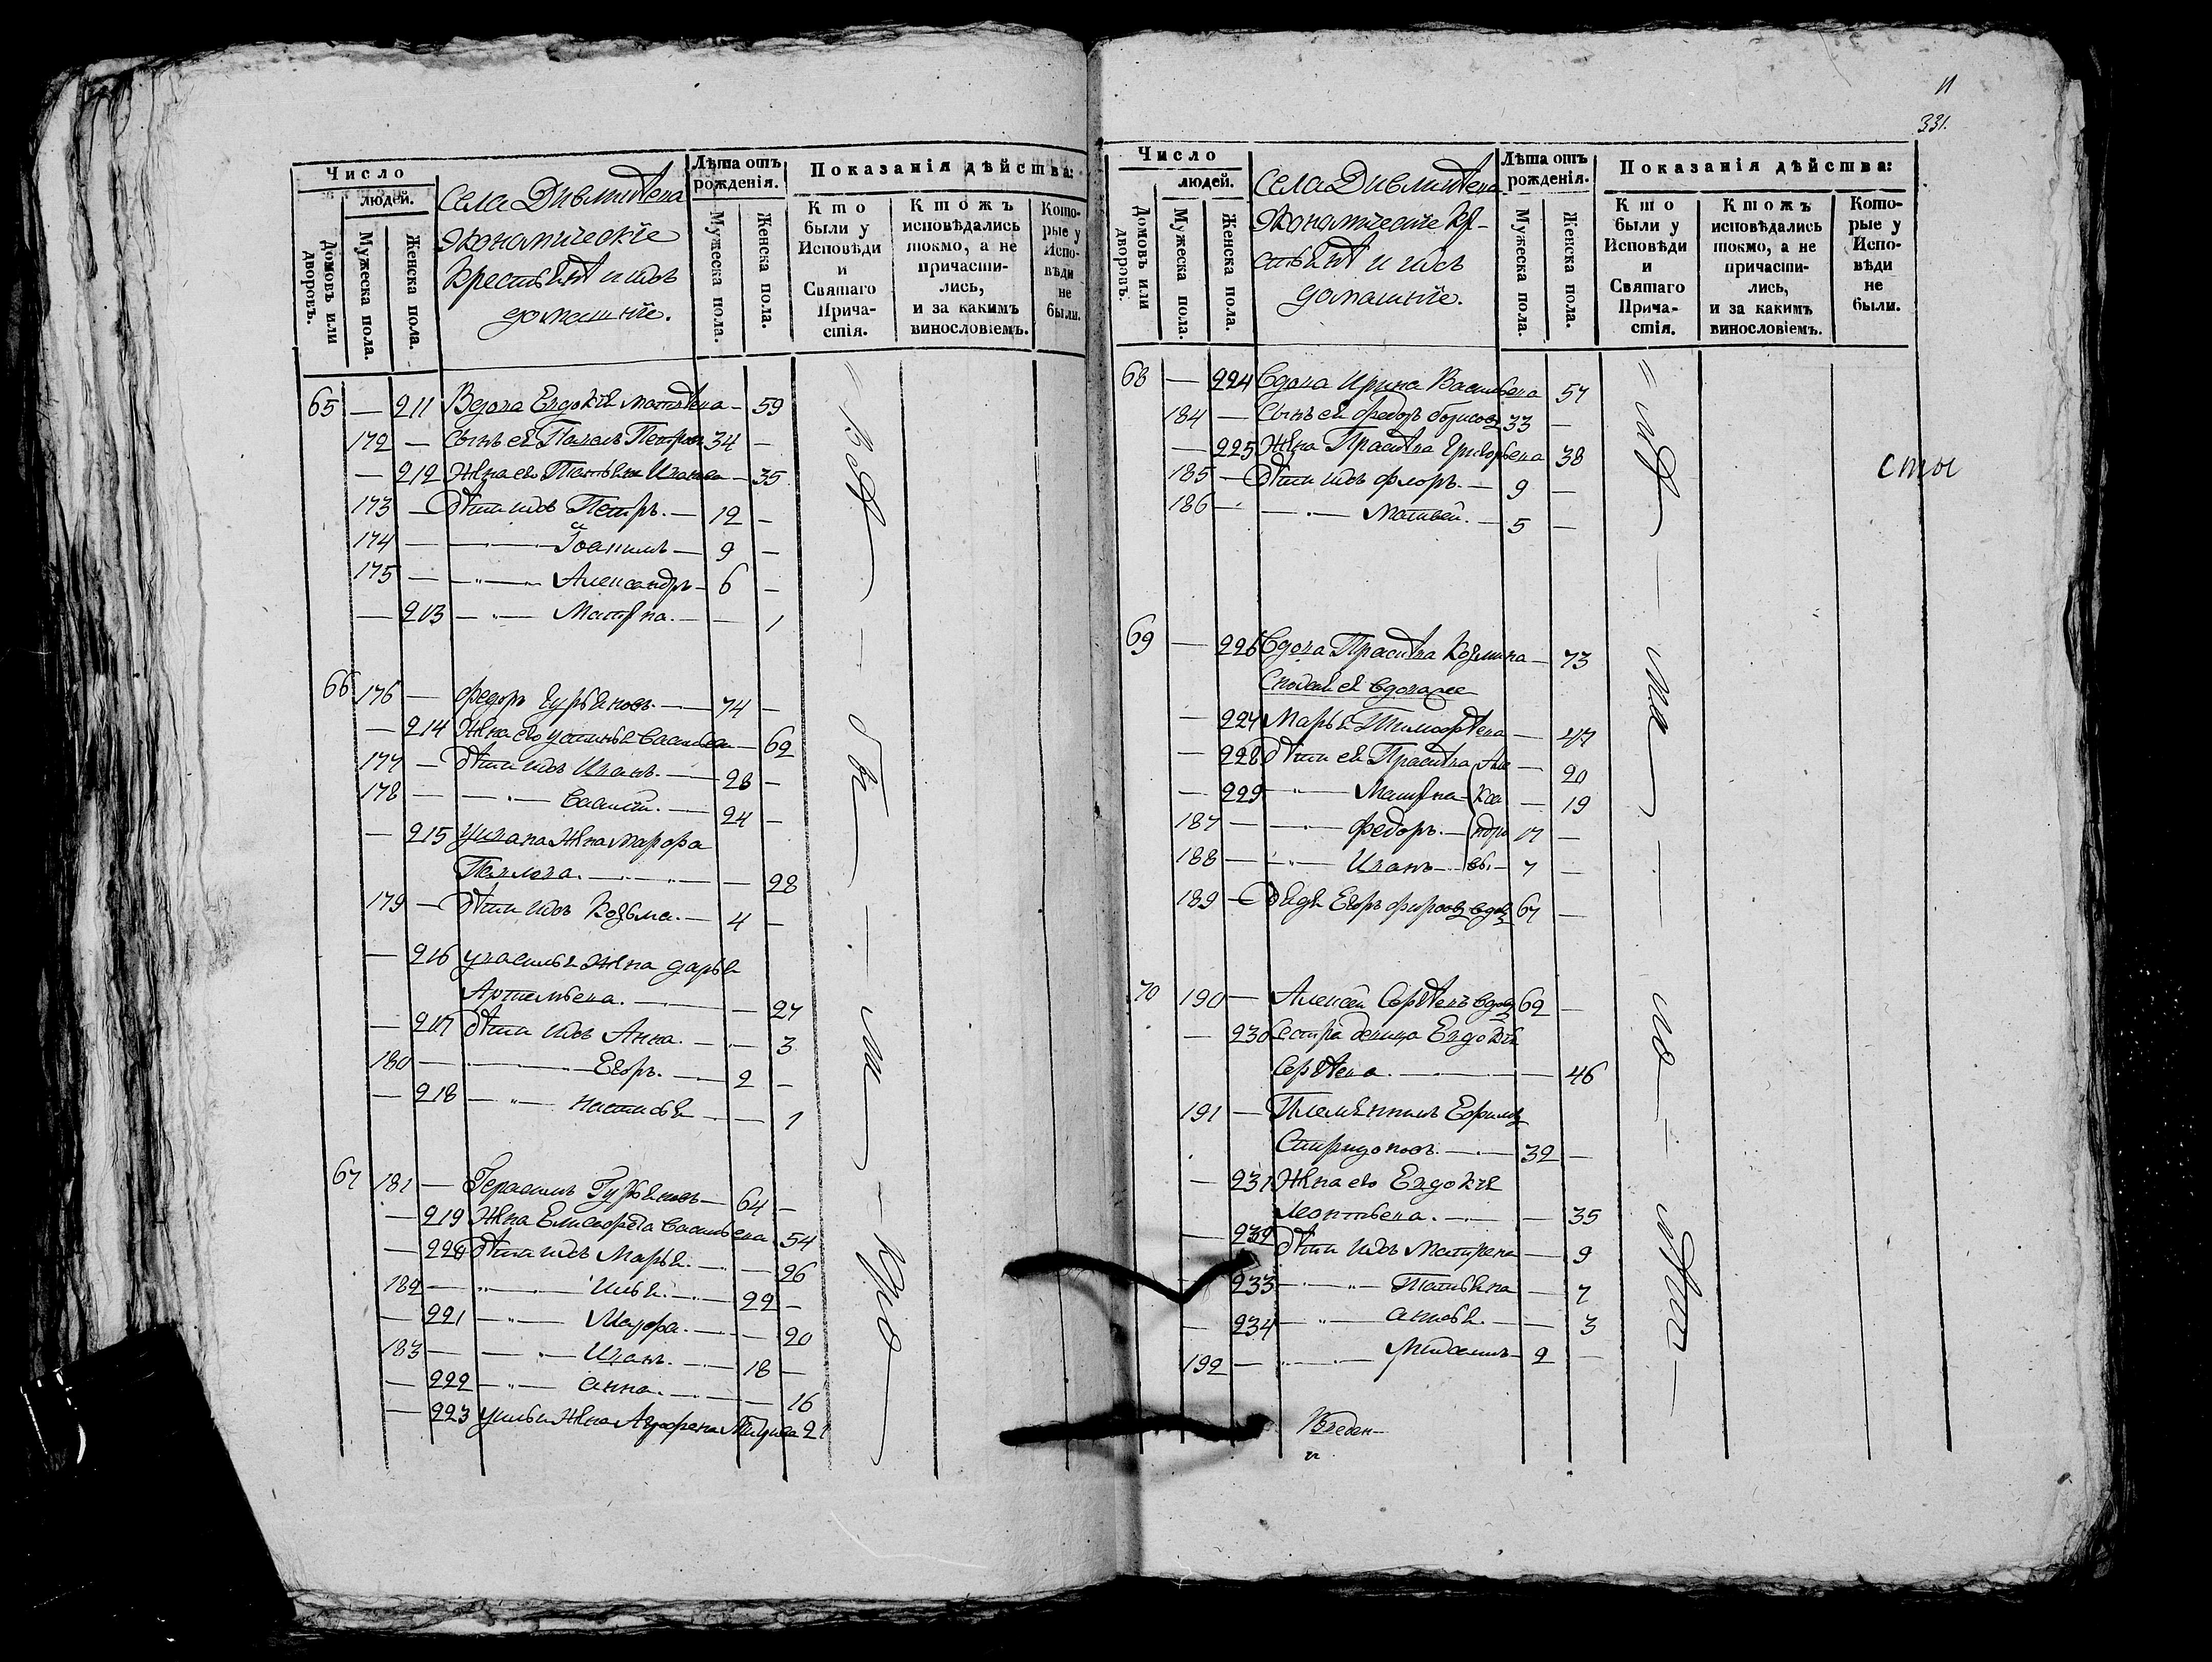 Число
людей.
Домовъ или дворовъ.
Мужеска пола.
Женска пола.
Села
Экономическіе
Крестьянѣ и ихъ
домашніе.
Лѣта отъ рожденія.
Мужеска пола.
Женска пола.
Показанія дѣйства:
Кто были у Исповѣди и Святаго Причастія.
Ктожъ исповѣдались токмо, а не причастились, и за какимъ винословіемъ.
Которые у Исповѣди не были.
65 — 211 Вдова Евдокія — 59
172 — Сынъ ея Павелъ Петровъ 34 —
— 212 Жена его Татьяна Иванова — 35
173 — Дѣти ихъ Петръ. — 12 —
174 — Іоакимъ — 9 —
175 — Александръ — 6 —
— 213 — Матрена. — — 1
66 176 — Федоръ Гурьяновъ. — 74 —
— 214 Жена его Устинья Васильева — 62
177 — Дѣти ихъ Иванъ. — 28 —
178 — Василій. — 24 —
— 215 У Ивана жена Марфа
Павлова. — — 28
179 — Дѣти ихъ Козьма. — 4 —
— 216 У Василья жена Дарья
Артемьева. — — 27
— 217 Дѣти ихъ Анна. — — 3
180 — Егоръ. — 2 —
— 218 — Настасья — — 1
67 181 — Герасимъ Гурьяновъ — 64 —
— 219 Жена Елисавета Васильева 54
— 220 Дѣти ихъ Марья. — — 26
182 — Илья. — 22 —
— 221 — Мавра. — — 20
183 — Иванъ. — 18 —
— 222 — Анна. — — 16
— 223 У Ильи жена Аграфена 21
11
331.
Число
людей.
Домовъ или дворовъ.
Мужеска пола.
Женска пола.
Села
Экономическіе кре-
стьянѣ и ихъ
домашніе.
Лѣта отъ рожденія.
Мужеска пола.
Женска пола.
Показанія дѣйства:
Кто были у Исповѣди и Святаго Причастія.
Ктожъ исповѣдались токмо, а не причастились, и за какимъ винословіемъ.
Которые у Исповѣди не были.
68 — 224 Вдова Ирина Васильева 57
184 — Сынъ ея Федоръ Борисовъ 33 —
— 225 Жена Прасковья Григорьева 38
185 — Дѣти ихъ Флоръ. — 9 —
186 — Матвей. — 5 —
сты
69 — 226 Вдова Прасковья Козмина — 73
вдова
— 227 Марья Тимофѣева — 47
— 228 Дѣти ея Прасковья Але — 20
— 229 — Матрена кса — 19
187 — Федоръ. — ндро 17 —
188 — Иванъ — вы. — 7 —
189 — Дядя Егоръ Фирсовъ вдовъ 67 —
70 190 — Алексѣй Сергѣевъ вдовъ 62 —
— 230 Сестра девица Евдокія
Сергѣева. — — 46
191 — Племянникъ Ефимъ
Спиридоновъ. — 32 —
— 231 Жена его Евдокія
Леонтьева. — — 35
— 232 Дѣти ихъ Матрена — 9
— 233 — Татьяна — 7
— 234 — — 3
192 — 2 —